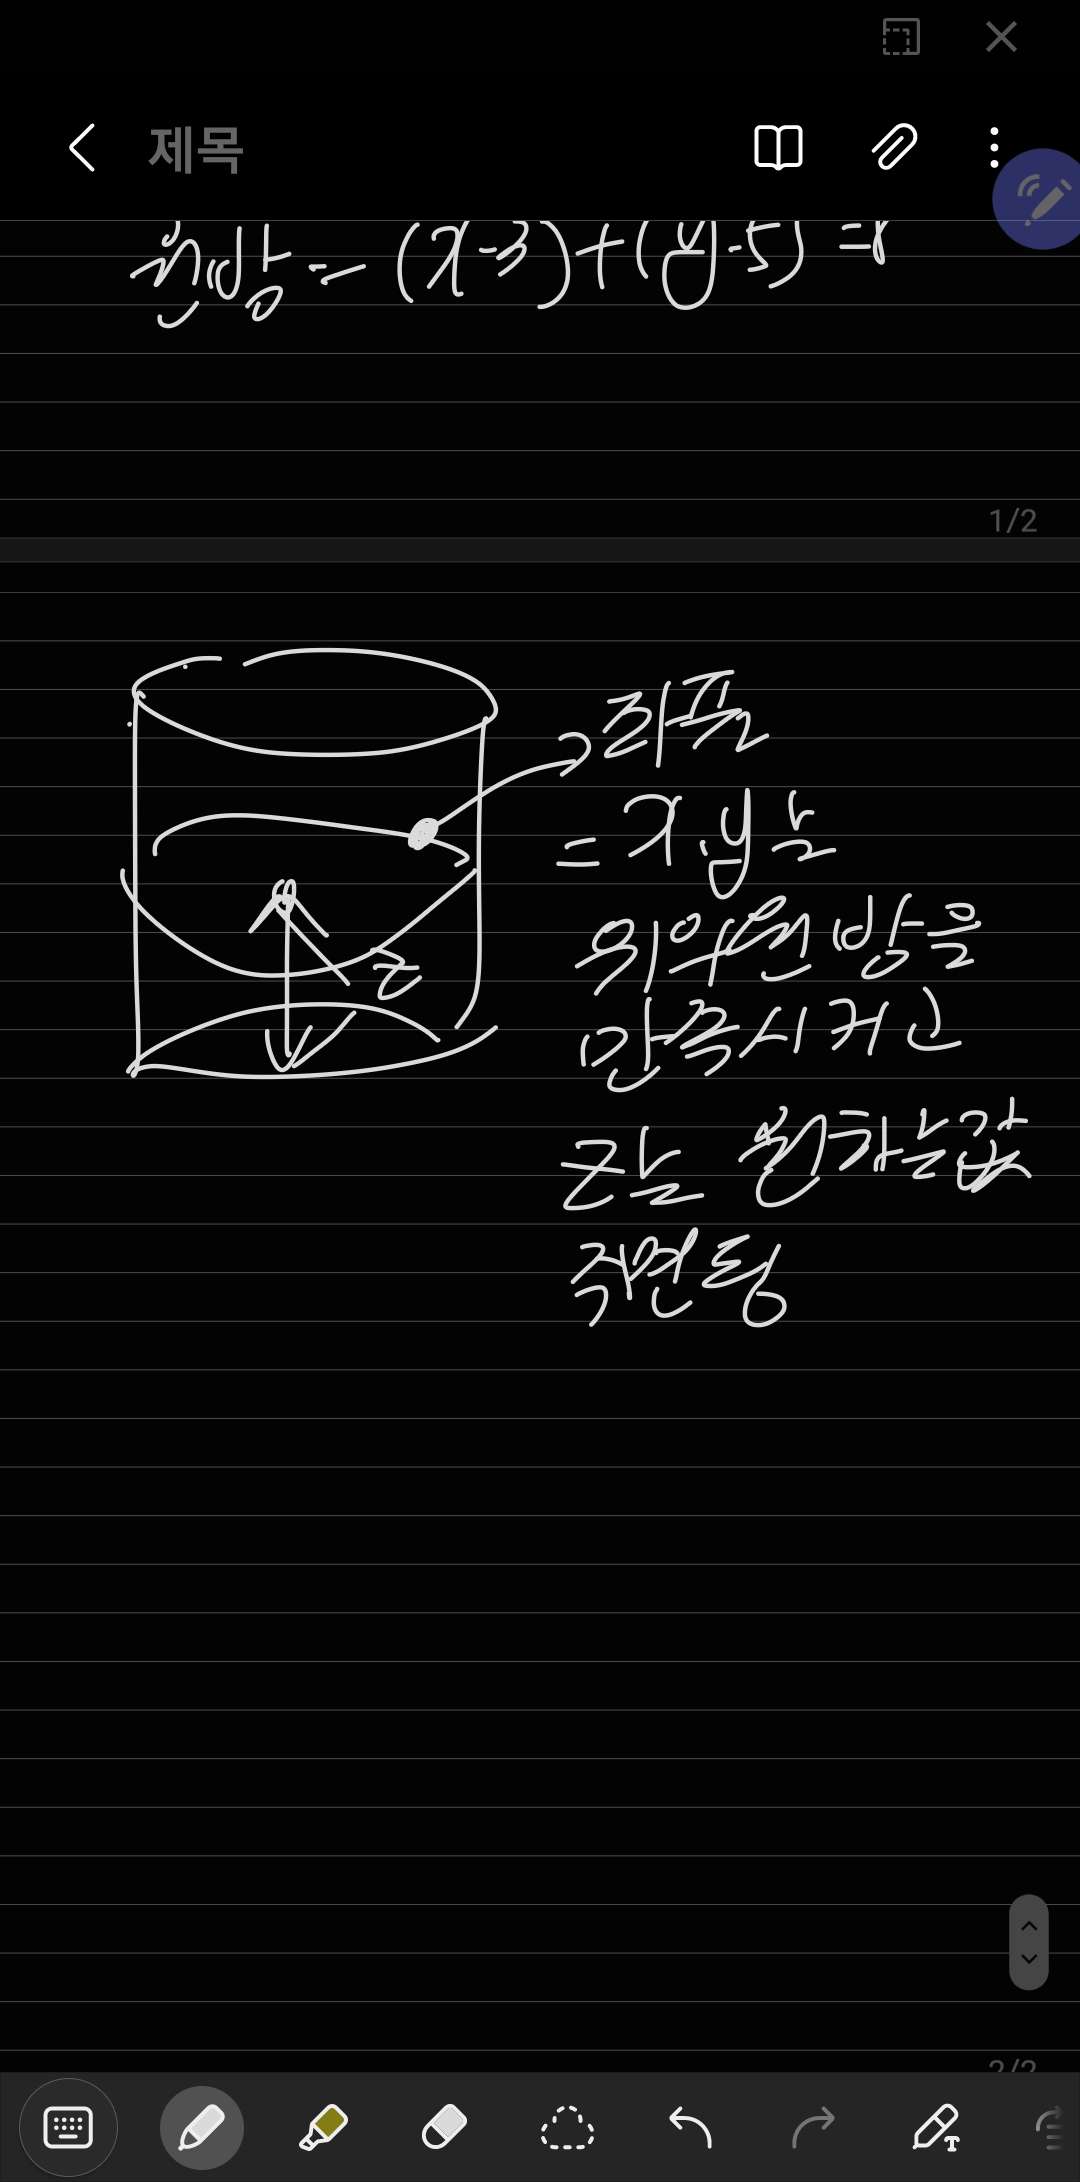 제목
원방 = (x-3)+(y-5)=8
1/2
좌표
= x,y는
위와 원방을
만족시키고
z는 원하는 값
주면 됨
z
2/2